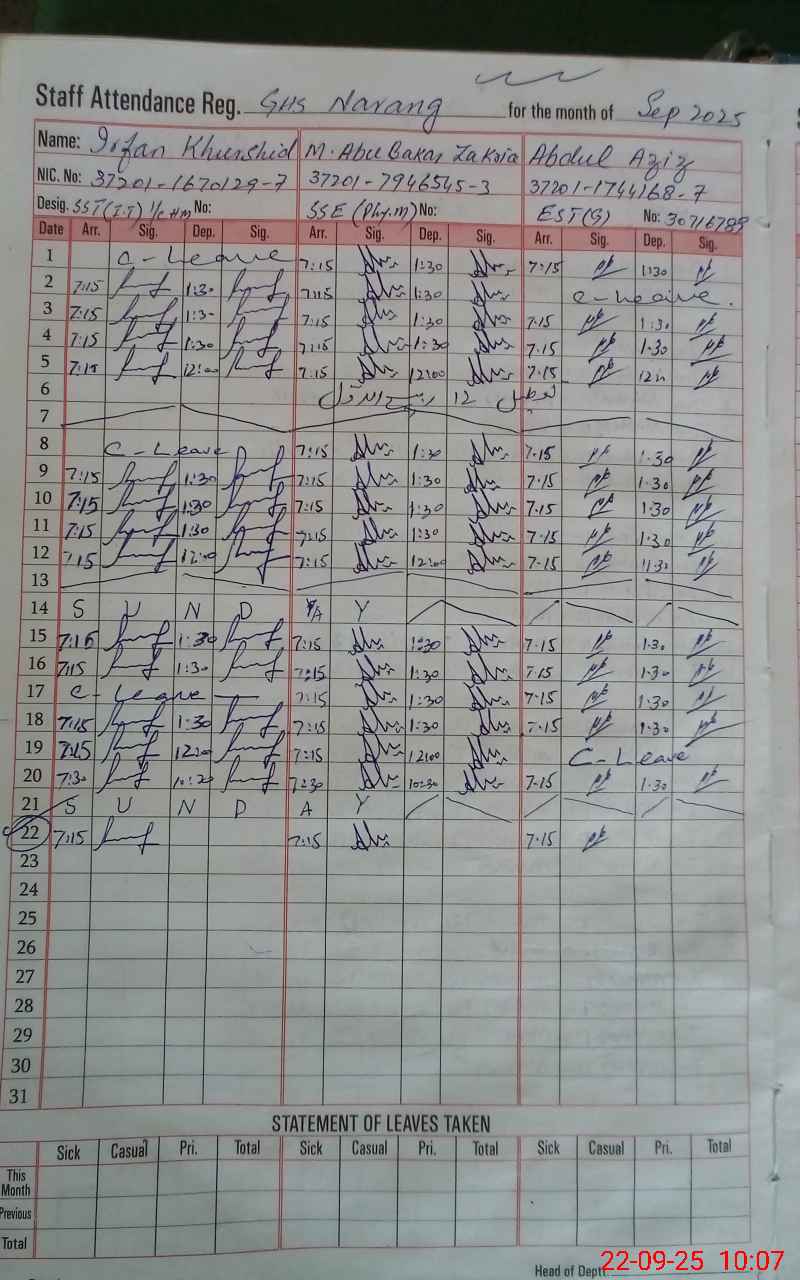 Staff Attendance Reg. GHS Narang for the month of Sep 2025
Name: Irfan Khurshid M. Abu Bakar Zakria Abdul Aziz
NIC. No: 37201-1670129-7 37201-7946545-3 37201-1744168-7
Desig. SST(I.T) I/c HM No: SSE (Phy.M) No: EST(G) No: 30716789
Date Arr. Sig. Dep. Sig. Arr. Sig. Dep. Sig. Arr. Sig. Dep. Sig.
1 C-Leave 7:15 1:30 7:15 1:30
2 7:15 1:30 7:15 1:30 C-Leave.
3 7:15 1:30 7:15 1:30 7.15 1:30
4 7:15 1:30 7:15 1:30 7.15 1.30
5 7:15 12:00 7:15 12:00 7.15
6 12 ربیع الاول تعطیل
7
8 C-Leave 7:15 1:30 7.15 1.30
9 7:15 1:30 7:15 1:30 7.15 1.30
10 7:15 1:30 7:15 1:30 7.15 1.30
11 7:15 1:30 7:15 1:30 7.15 1.30
12 7:15 12:00 7:15 12:00 7.15 11.30
13
14 S U N D A Y
15 7:15 1:30 7:15 1:30 7.15 1.30
16 7:15 1:30 7:15 1:30 7.15 1.30
17 C-Leave 7:15 1:30 7.15 1.30
18 7:15 1:30 7:15 1:30 7.15 1.30
19 7:15 12:00 7:15 12:00 C-Leave
20 7:30 10:20 7:30 10:30 7.15 1.30
21 S U N D A Y
22 7:15 7:15 7.15
23
24
25
26
27
28
29
30
31
STATEMENT OF LEAVES TAKEN
Sick Casual Pri. Total Sick Casual Pri. Total Sick Casual Pri. Total
This Month
Previous
Total
Head of Deptt.
22-09-25 10:07